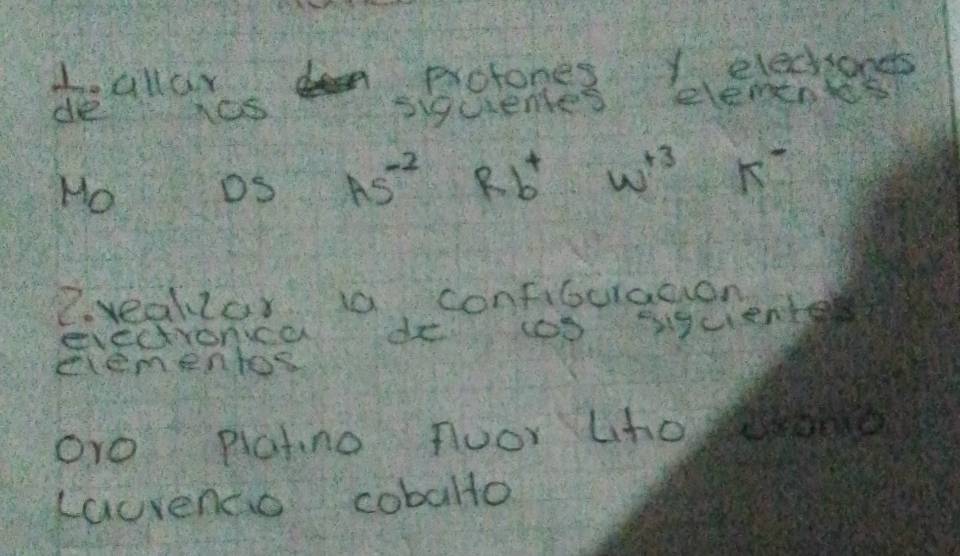 1. allar protones y electrones
de los siguientes elementos
Mo DS As⁻² Rb⁺ W⁺³ K⁻
2. realizar la configuracion
electronica de los siguientes
elementos
oro Platino Fluor Litio uranio
Laurencio cobalto